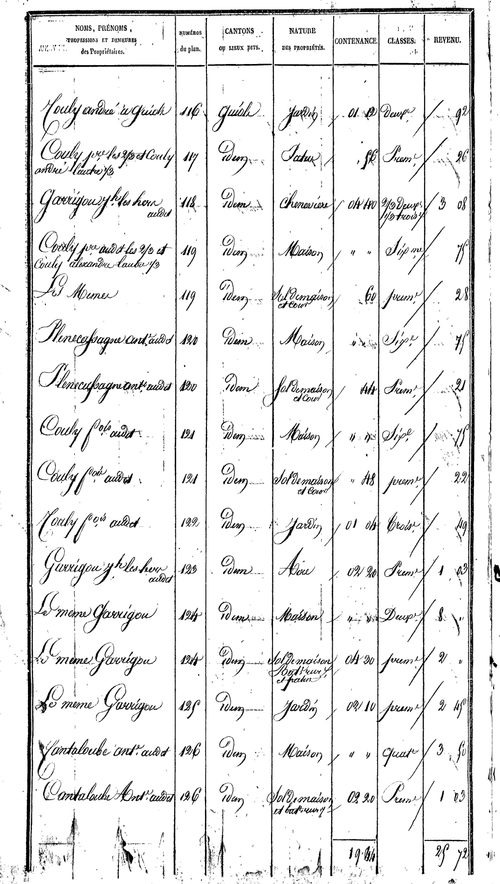 NOMS, PRÉNOMS, PROFESSIONS ET DEMEURES des Propriétaires. NUMÉROS du plan. CANTONS OU LIEUX DITS. NATURE DES PROPRIÉTÉS. CONTENANCE. CLASSES. REVENU.
Couly andré le guich 116 guich Jardin 01 12 Deuxe 92
Couly pre les 2/3 et Couly andré l'autre 1/3 117 Idem Patus 56 Preme 26
Garrigou jh. les hers audit 118 Idem Cheneviere 04 40 2/3 Deuxe 1/3 troise 3 08
Couly pre audit les 2/3 et Couly alexandre l'autre 1/3 119 Idem Maison " " Sixme 75
Les Memes 119 Idem Sol de maison et cour 60 preme 28
Plenecassagne ante audit 120 Idem Maison " " Sixe 75
Plenecassagne ante audit 120 Idem Sol de maison et cour 44 Preme 21
Couly fois audit 121 Idem Maison " " Sixe 75
Couly fois audit 121 Idem Sol de maison et cour " 48 preme 22
Couly fois audit 122 Idem Jardin 01 04 Troise 49
Garrigou jh les hers audit 123 Idem Aire 02 20 Preme 1 03
Le meme Garrigou 124 Idem Maison " " Deuxe 8 "
Le meme Garrigou 124 Idem Sol de maison 04 30 preme 2 "
Le meme Garrigou 125 Idem Jardin 02 10 preme 2 45
Cantaloube ante audit 126 Idem Maison " " quate 3 50
Cantaloube Ante audit 126 Idem Sol de maison 02 20 Preme 1 03
19 34 25 72